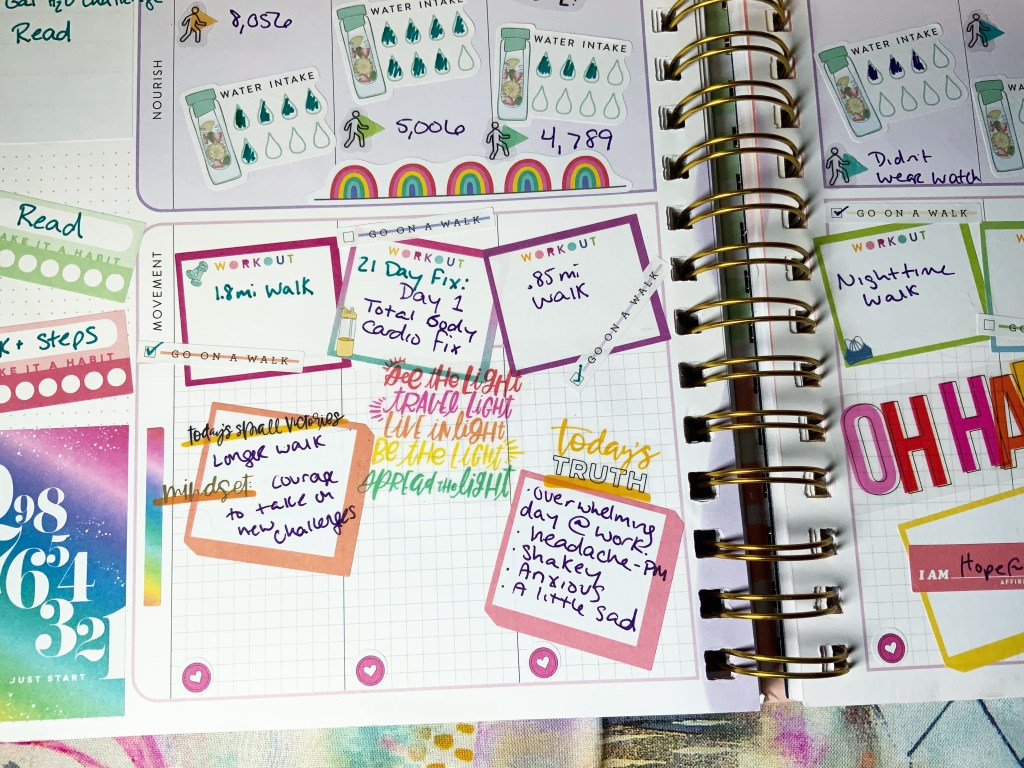 Read
8,056
WATER INTAKE
WATER INTAKE
WATER INTAKE
5,006
4,789
NOURISH
Read
MAKE IT A HABIT
+ Steps
MAKE IT A HABIT
98
7654
321
JUST START
MOVEMENT
WORKOUT
1.8mi walk
GO ON A WALK
GO ON A WALK
WORKOUT
21 Day Fix:
Day 1
Total Body
Cardio Fix
WORKOUT
.85mi
walk
GO ON A WALK
today's small victories
Longer walk
mindset: courage
to take on
new challenges
SEE THE LIGHT
TRAVEL LIGHT
LIVE IN LIGHT
BE THE LIGHT
SPREAD the LIGHT
today's
TRUTH
· Overwhelming
day @ work.
· headache-PM
· Shakey
· Anxious
· A little sad
WATER INTAKE
Didn't
wear watch
GO ON A WALK
WORKOUT
Nighttime
walk
OH HA
I AM